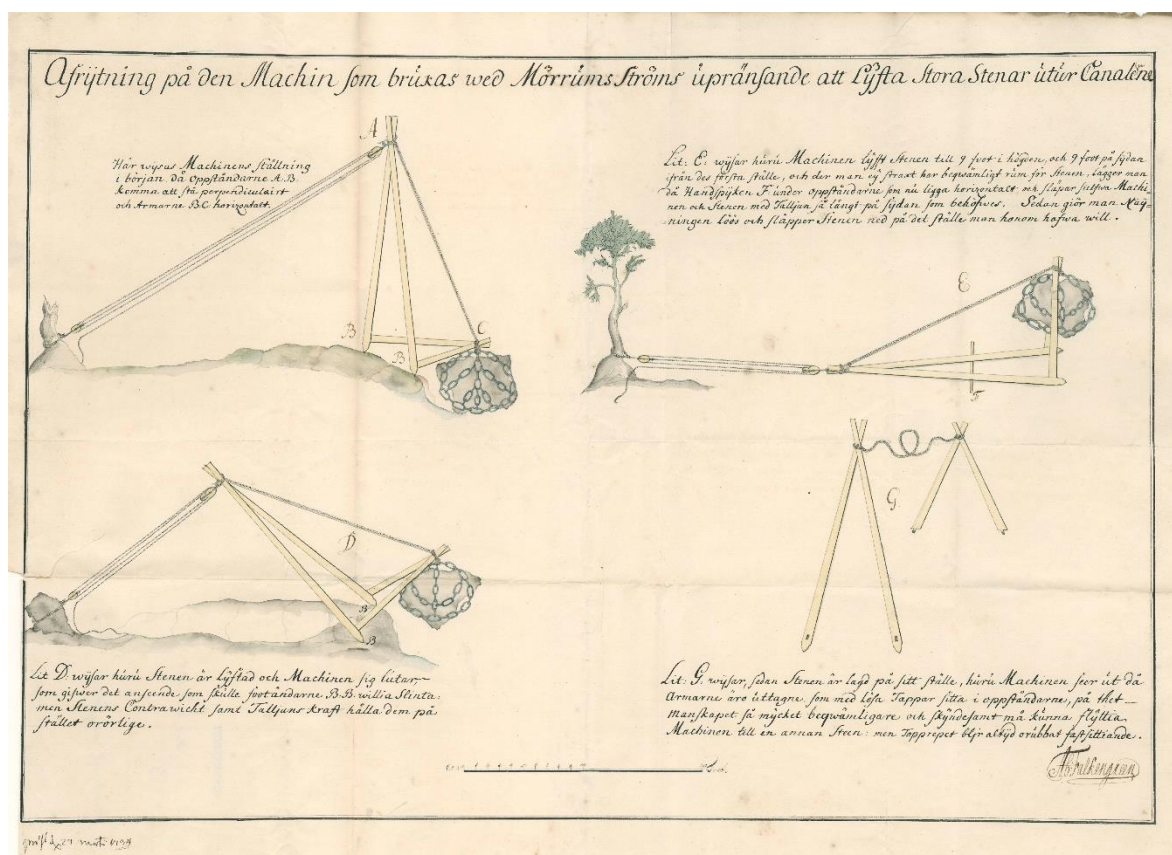 Afrijtning på den Machin som brukas wed Mörrums Ströms upränsande att Lyffta Stora Stenar utur Canalerne
A
Här wijsas Machinens ställning
i början då Oppståndarne A.B.
komma att stå perpendiculairt
och Armarne BC horizontalt.
B
B
C
Lit: E: wijsar huru Machinen lyfft Stenen till 9 foot i högden, och 9 foot på sijdan
ifrån des första ställe, och der man eij straxt har beqwämligt rum för Stenen, lägger man
då Handspijken F. under oppståndarne som nu ligga horizontalt och släpar sielfwa Machi-
nen och Stenen med Talljan så långt på sijdan som behöfwes. Sedan giör man Naij-
ningen löös och släpper Stenen ned på det ställe man honom hafwa will.
E
F
G
D
B
B
Lit D: wijsar huru Stenen är Lyftad och Machinen sig lutar,
som gifwer det anseende som skulle footändarne B.B. willia Slinta:
men Stenens Contrawicht samt Talljans kraft hålla dem på
stället orörlige.
Lit: G: wijsar, sedan Stenen är lagd på sitt ställe, huru Machinen seer ut då
Armarne äro uttagne, som med lösa Tappar sitta i oppståndarne, på thet
manskapet så mycket beqwämligare och skyndesamt må kunna flyttia
Machinen till en annan Steen: men Topprepet blijr altijd orubbat fastsittiande.